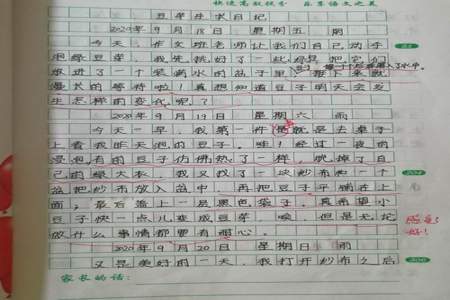 快速高效提分 乐享语文之美
豆芽生长日记
2020年9月18日 星期五 阴
今天,作文班老师让我们自己动手
泡绿豆芽,我先挑好了一些绿豆,把它们
放进了一个装满水的盆子里,接下来就
漫长的等待啦!真想知道豆子明天会发
生怎样的变化呢?
2020年9月19日 星期六 雨
今天一早,我第一件事就是去桌子
上看我昨天泡的豆子。哇!经过一夜的
浸泡,有的豆子仿佛热了一样,脱掉了自
己的绿大衣。我又找了一块纱布和一个
盆把纱布放入盆中,再把豆子平铺在上
面,最后盖上一层黑色袋子。真希望小
豆子快一点儿变成豆芽。唉,但是无论
做什么事情都要有耐心。
感受
好!
2020年9月20日 星期日 雨
又是美好的一天,我打开纱布之后
家长的话: